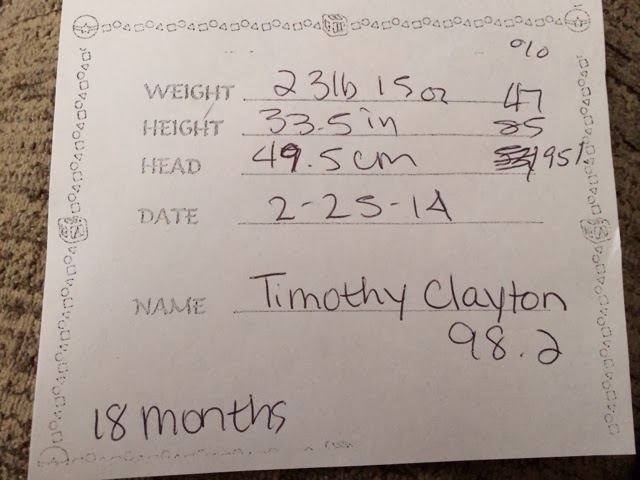 %
WEIGHT 23lb 15oz 47
HEIGHT 33.5in 85
HEAD 49.5cm 95%
DATE 2-25-14
NAME Timothy Clayton
98.2
18 months